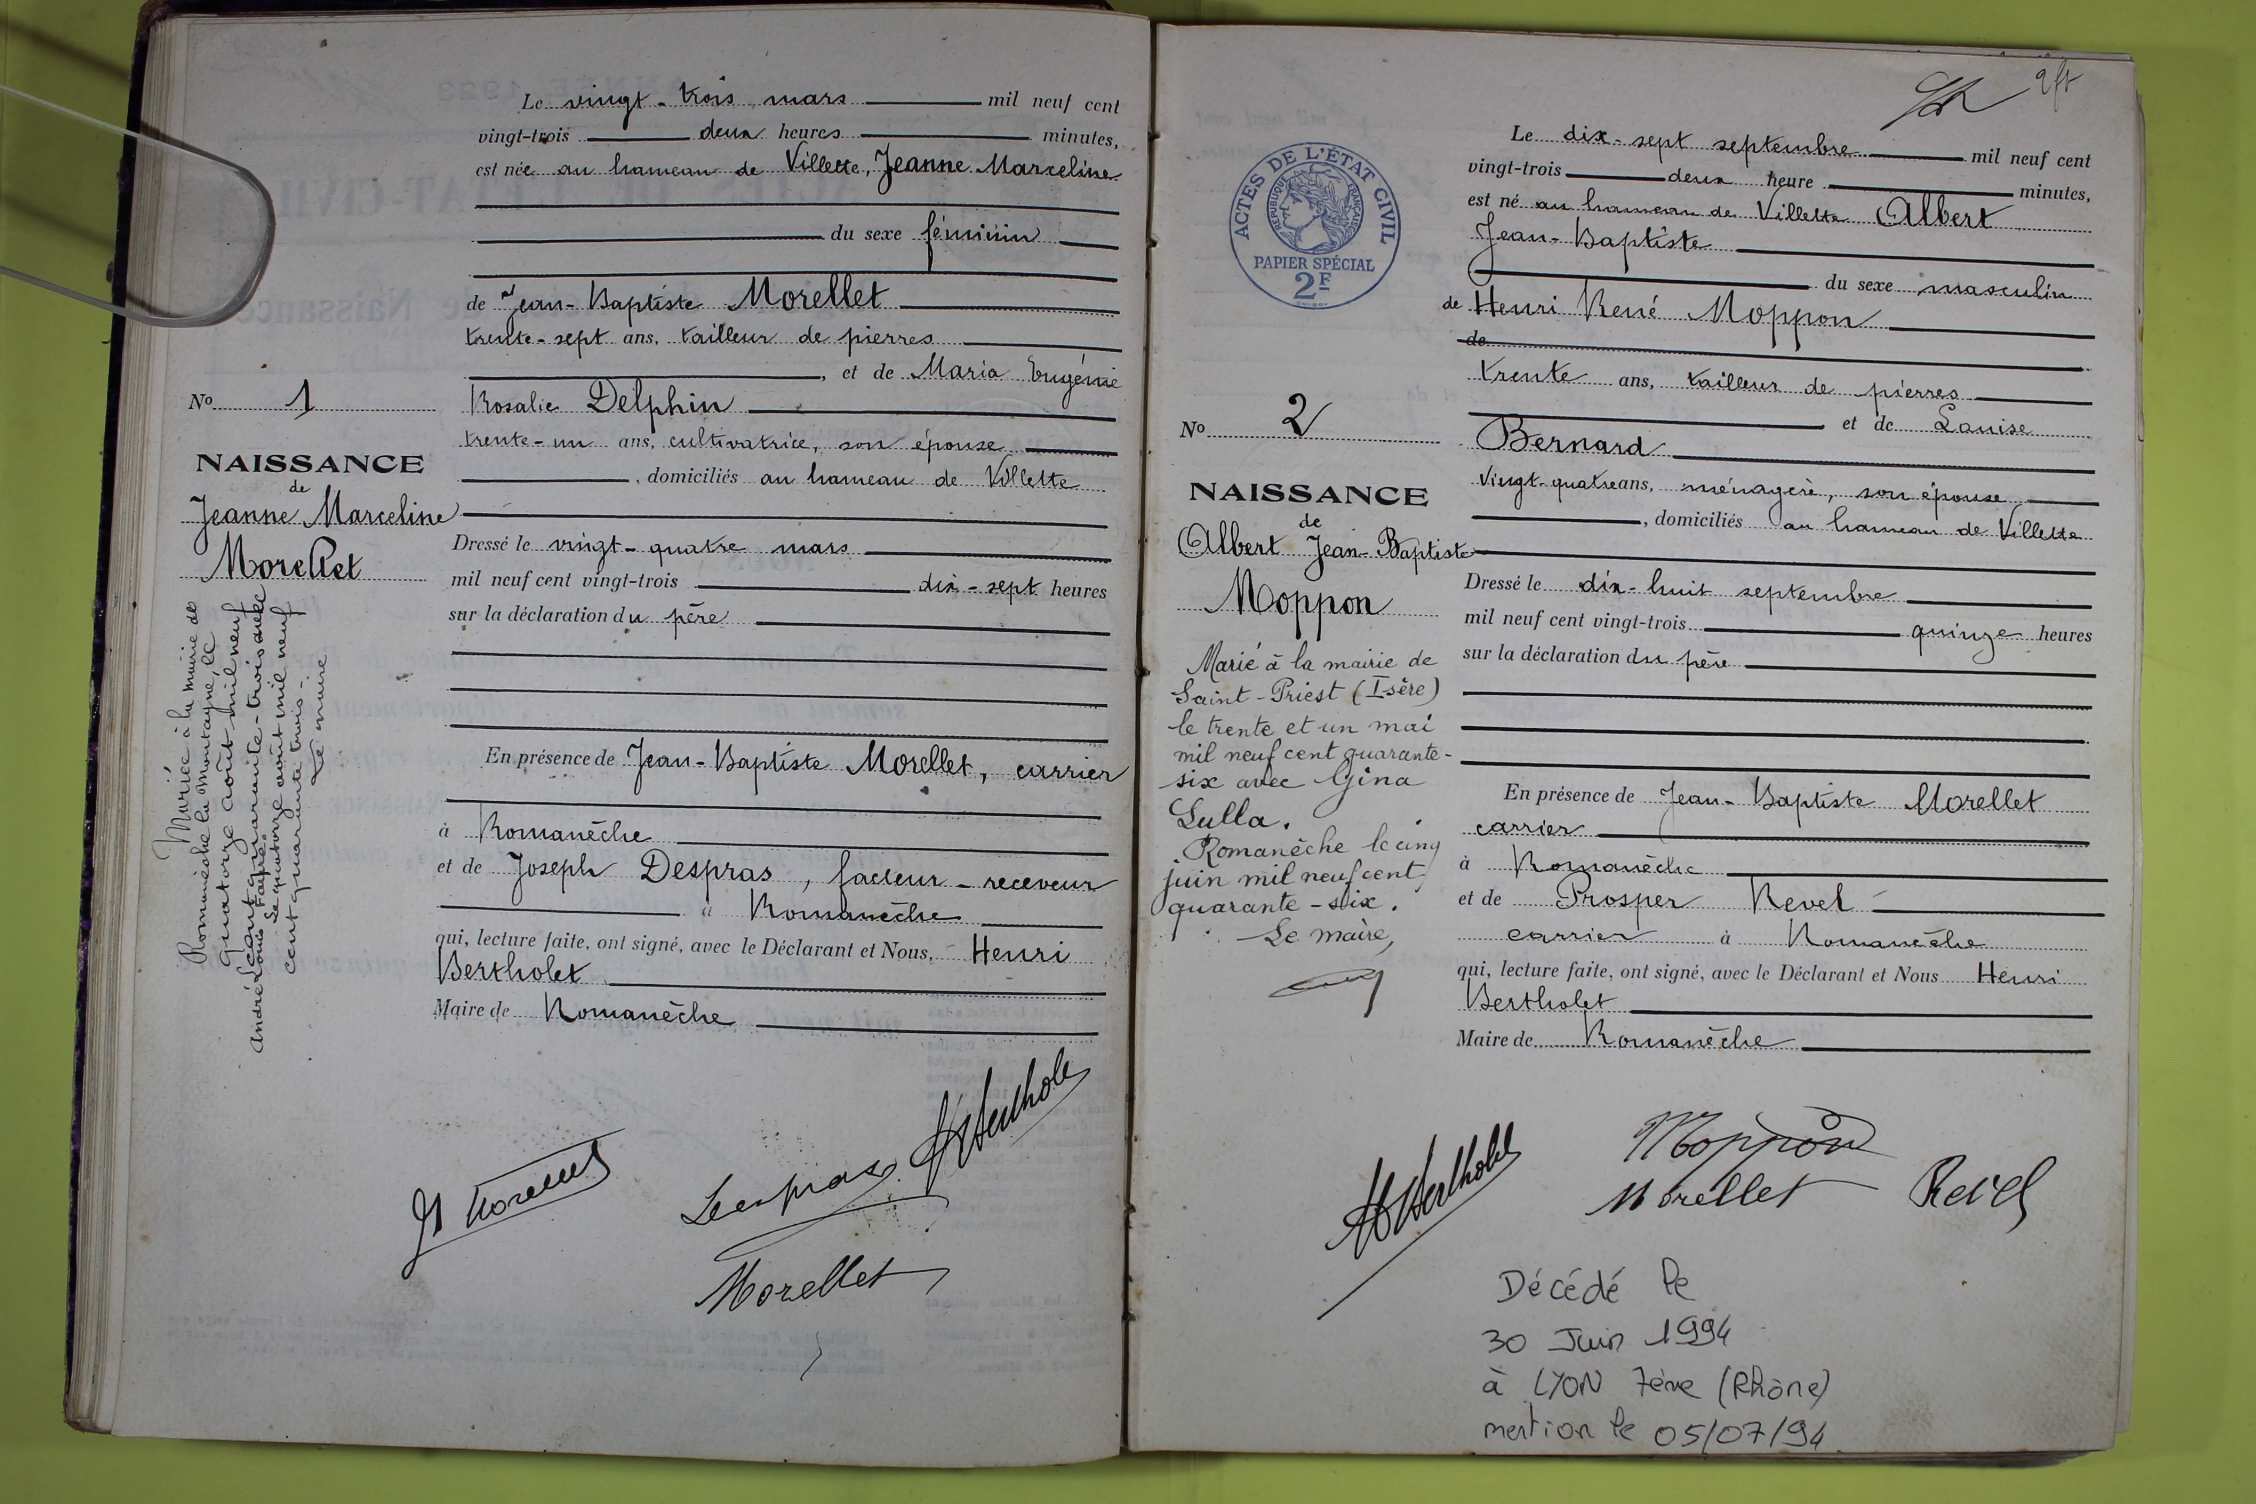 Le vingt-trois mars mil neuf cent
vingt-trois deux heures minutes,
est née au hameau de Villette, Jeanne Marceline
du sexe féminin
de Jean-Baptiste Morellet
trente-sept ans, tailleur de pierres
, et de Maria Eugénie
Rosalie Delphin
trente-un ans, cultivatrice, son épouse
, domiciliés au hameau de Villette
Dressé le vingt-quatre mars
mil neuf cent vingt-trois dix-sept heures
sur la déclaration du père
En présence de Jean-Baptiste Morellet, carrier
à Romanèche
et de Joseph Despras, facteur-receveur
à Romanèche
qui, lecture faite, ont signé, avec le Déclarant et Nous, Henri
Bertholet
Maire de Romanèche
No 1
NAISSANCE
de
Jeanne Marceline
Morellet
Mariée à la mairie de
Romanèche la Montagne, le
quatorze août mil neuf
cent quarante-trois avec
André Louis
Le quatorze août mil neuf
cent quarante trois-
Le maire
Morellet
Despras
HBertholet
Morellet
2
Le dix-sept septembre mil neuf cent
vingt-trois deux heure minutes,
est né au hameau de Villette Albert
Jean-Baptiste
du sexe masculin
de Henri René Moppon
de
trente ans, tailleur de pierres
et de Louise
Bernard
vingt-quatre ans, ménagère, son épouse
, domiciliés au hameau de Villette
Dressé le dix-huit septembre
mil neuf cent vingt-trois quinze heures
sur la déclaration du père
En présence de Jean-Baptiste Morellet
carrier
à Romanèche
et de Prosper Revel
carrier à Romanèche
qui, lecture faite, ont signé, avec le Déclarant et Nous Henri
Bertholet
Maire de Romanèche
ACTES DE L'ÉTAT CIVIL
RÉPUBLIQUE FRANÇAISE
PAPIER SPÉCIAL
2F
No 2
NAISSANCE
de
Albert Jean-Baptiste
Moppon
Marié à la mairie de
Saint-Priest (Isère)
le trente et un mai
mil neuf cent quarante-
six avec Gina
Lulla.
Romanèche le cinq
juin mil neuf cent
quarante-six.
Le maire,
HBertholet
Moppon
Morellet
Revel
Décédé le
30 Juin 1994
à LYON 7ème (Rhône)
mention le 05/07/94